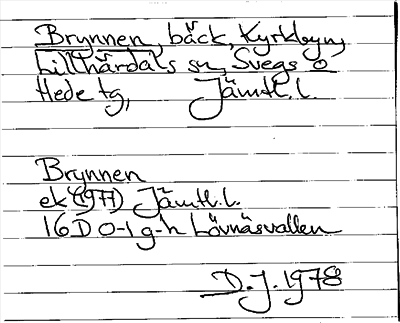 Brynnen, bäck, Kyrkbyn,
Lillhärdals sn, Svegs o
Hede tg, Jämtl. l.
Brynnen
ek (1977) Jämtl. l.
16D 0-1 g-h Lövnäsvallen
D. J. 1978